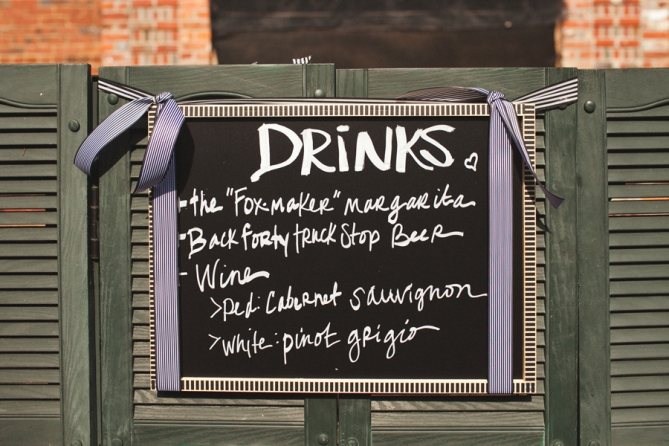 DRINKS
- the "Fox-maker" margarita
- Back forty truck stop Beer
- Wine
>Red: Cabernet sauvignon
>white: pinot grigio